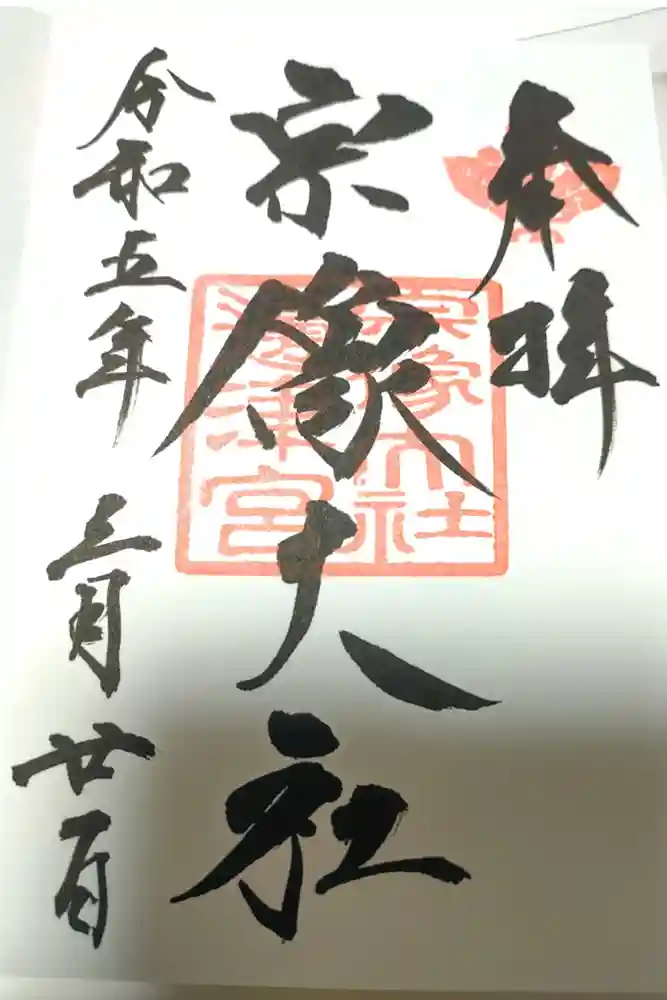 奉拝
宗像大社
宗像大社
邊津宮
令和五年 三月廿一日